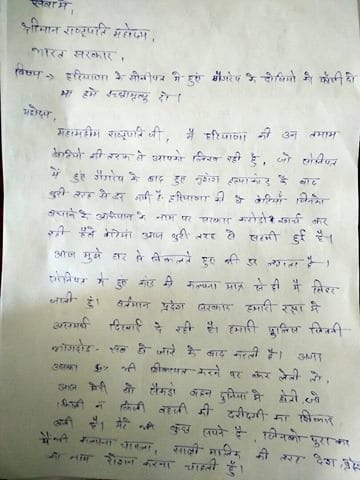 सेवा में,
श्रीमान राष्ट्रपति महोदय,
भारत सरकार,
विषय -> हरियाणा के सोनीपत में हुए गैंगरेप के दोषियों को फाँसी दो
या हमें इच्छामृत्यु दो।
महोदय,
महामहीम राष्ट्रपति जी, मैं हरियाणा की उन तमाम
बेटियों की तरफ से आपको लिख रही हूँ, जो सोनीपत
में हुए गैंगरेप के बाद हुए हत्याकांड के बाद
पूरी तरह से डर गयी है। हरियाणा की वो बेटियां जिनको
बचाने के अभियान के नाम पर सरकार करोडों खर्च कर
रही है। वो बेटियां आज पूरी तरह से सहमी हुई है।
आज मुझे घर से निकलते हुए भी डर लगता है।
सोनीपत के हुए कांड की कल्पना मात्र से ही मैं सिहर
जाती हूं। वर्तमान प्रदेश सरकार हमारी रक्षा में
असमर्थ दिखाई दे रही है। हमारी पुलिस जितनी
भागदौड़ सब हो जाने के बाद करती है। अगर
उसका भी शिकायत करने पर कर लेती तो,
आज मेरी वो बहन दुनिया में होती जो
किसी न किसी लडकी की दरींदगी का शिकार
बनी है। मेरे भी कुछ सपने है, जिनको पूरा कर
मैं भी कल्पना चावला, साक्षी मालिक की तरह देश, प्रदेश
का नाम रोशन करना चाहती हूँ।